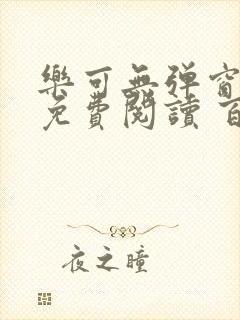 樂可無彈窗
免費閱讀 百
夜之瞳